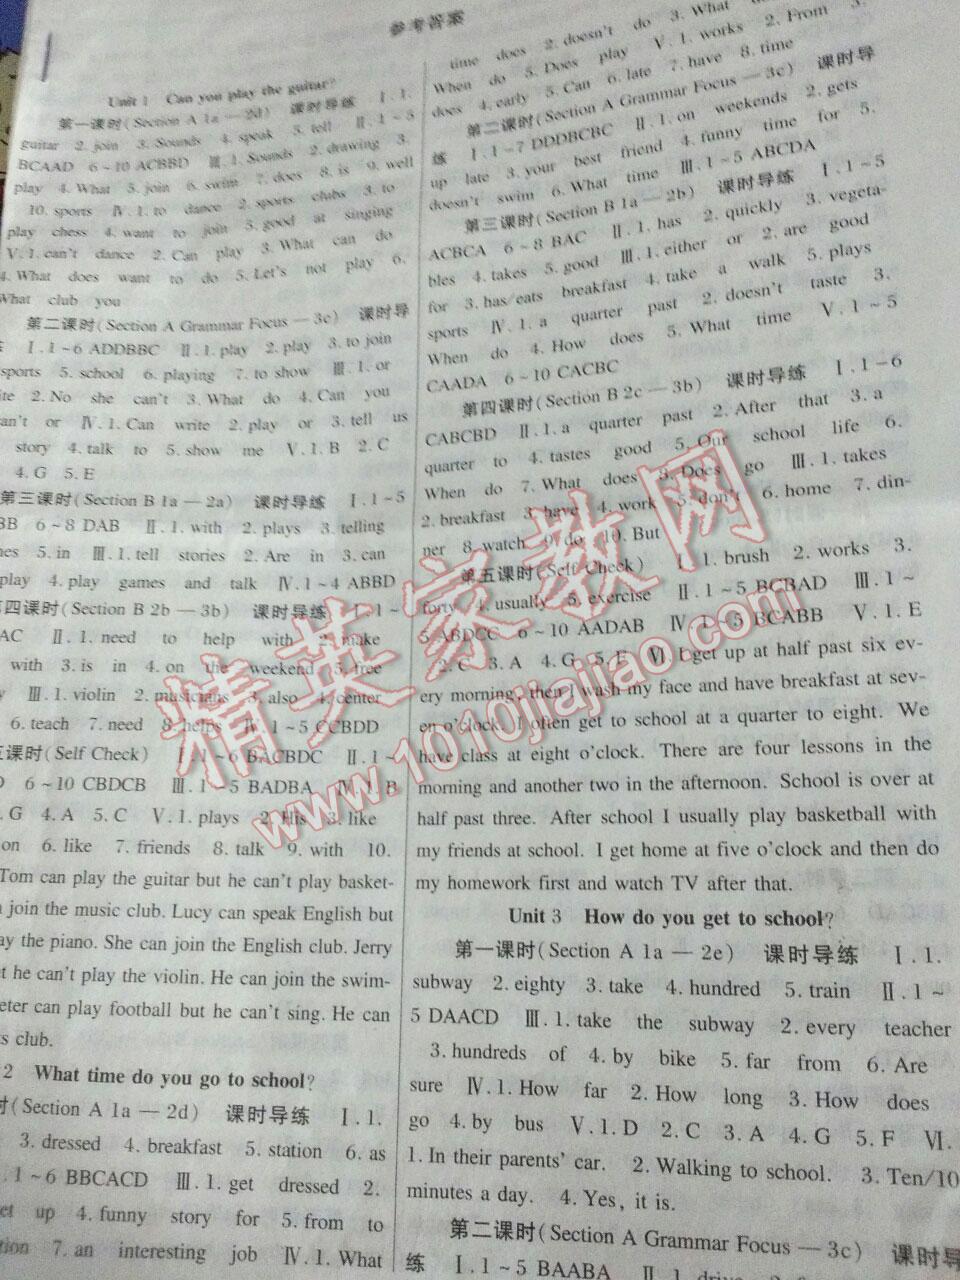 参考答案
Unit 1 Can you play the guitar?
第一课时(Section A 1a — 2d) 课时导练 Ⅰ. 1.
guitar 2. join 3. Sounds 4. speak 5. tell Ⅱ. 1 ~ 5
BCAAD 6 ~ 10 ACBBD Ⅲ. 1. Sounds 2. drawing 3.
play 4. What 5. join 6. swim 7. does 8. is 9. well
10. sports Ⅳ. 1. to dance 2. sports clubs 3. to
play chess 4. want to join 5. good at singing
Ⅴ. 1. can't dance 2. Can play 3. What can do
4. What does want to do 5. Let's not play 6.
What club you
第二课时(Section A Grammar Focus — 3c) 课时导
Ⅰ. 1 ~ 6 ADDBBC Ⅱ. 1. play 2. play 3. to join
sports 5. school 6. playing 7. to show Ⅲ. 1. or
2. No she can't 3. What do 4. Can you
or Ⅳ. 1. Can write 2. play or 3. tell us
story 4. talk to 5. show me Ⅴ. 1. B 2. C
4. G 5. E
第三课时(Section B 1a — 2a) 课时导练 Ⅰ. 1 ~ 5
BB 6 ~ 8 DAB Ⅱ. 1. with 2. plays 3. telling
5. in Ⅲ. 1. tell stories 2. Are in 3. can
play 4. play games and talk Ⅳ. 1 ~ 4 ABBD
四课时(Section B 2b — 3b) 课时导练 Ⅰ. 1 ~
AC Ⅱ. 1. need to help with 2. make
with 3. is in 4. on the weekend 5. free
Ⅲ. 1. violin 2. musicians 3. also 4. center
6. teach 7. need 8. helps Ⅳ. 1 ~ 5 CCBDD
课时(Self Check) Ⅰ. 1 ~ 6 BACBDC Ⅱ. 1 ~
6 ~ 10 CBDCB Ⅲ. 1 ~ 5 BADBA Ⅳ. 1. B
G 4. A 5. C Ⅴ. 1. plays 2. His 3. like
on 6. like 7. friends 8. talk 9. with 10.
Tom can play the guitar but he can't play basket-
join the music club. Lucy can speak English but
the piano. She can join the English club. Jerry
he can't play the violin. He can join the swim-
can play football but he can't sing. He can
club.
2 What time do you go to school?
(Section A 1a — 2d) 课时导练 Ⅰ. 1.
3. dressed 4. breakfast 5. station 6. as
1 ~ 6 BBCACD Ⅲ. 1. get dressed 2.
up 4. funny story for 5. from to
7. an interesting job Ⅳ. 1. What
time does 2. doesn't do 3. What
When do 5. Does play Ⅴ. 1. works 2. From 3.
does 4. early 5. Can 6. late 7. have 8. time
第二课时(Section A Grammar Focus — 3c) 课时导
练 Ⅰ. 1 ~ 7 DDDBCBC Ⅱ. 1. on weekends 2. gets
up late 3. your best friend 4. funny time for 5.
doesn't swim 6. What time Ⅲ. 1 ~ 5 ABCDA
第三课时(Section B 1a — 2b) 课时导练 Ⅰ. 1 ~ 5
ACBCA 6 ~ 8 BAC Ⅱ. 1. has 2. quickly 3. vegeta-
bles 4. takes 5. good Ⅲ. 1. either or 2. are good
for 3. has/eats breakfast 4. take a walk 5. plays
sports Ⅳ. 1. a quarter past 2. doesn't taste 3.
When do 4. How does 5. What time Ⅴ. 1 ~ 5
CAADA 6 ~ 10 CACBC
第四课时(Section B 2c — 3b) 课时导练 Ⅰ. 1 - 6
CABCBD Ⅱ. 1. a quarter past 2. After that 3. a
quarter to 4. tastes good 5. Our school life 6.
When do 7. What does 8. Does go Ⅲ. 1. takes
2. breakfast 3. have 4. work 5. don't 6. home 7. din-
ner 8. watch 9. do 10. But
第五课时(Self Check) Ⅰ. 1. brush 2. works 3.
forty 4. usually 5. exercise Ⅱ. 1 ~ 5 BCBAD Ⅲ. 1 ~
5 ABDCC 6 ~ 10 AADAB Ⅳ. 1 ~ 5 BCABB Ⅴ. 1. E
2. C 3. A 4. G 5. F Ⅵ. I get up at half past six ev-
ery morning, then I wash my face and have breakfast at sev-
en o'clock. I often get to school at a quarter to eight. We
have class at eight o'clock. There are four lessons in the
morning and another two in the afternoon. School is over at
half past three. After school I usually play basketball with
my friends at school. I get home at five o'clock and then do
my homework first and watch TV after that.
Unit 3 How do you get to school?
第一课时(Section A 1a — 2e) 课时导练 Ⅰ. 1.
subway 2. eighty 3. take 4. hundred 5. train Ⅱ. 1 ~
5 DAACD Ⅲ. 1. take the subway 2. every teacher
3. hundreds of 4. by bike 5. far from 6. Are
sure Ⅳ. 1. How far 2. How long 3. How does
go 4. by bus Ⅴ. 1. D 2. C 3. A 4. G 5. F Ⅵ.
1. In their parents' car. 2. Walking to school. 3. Ten/10
minutes a day. 4. Yes, it is.
第二课时(Section A Grammar Focus — 3c) 课时导
练 Ⅰ. 1 ~ 5 BAABA Ⅱ. 1. drive 2.
精英家教网
www.1010jiajiao.com